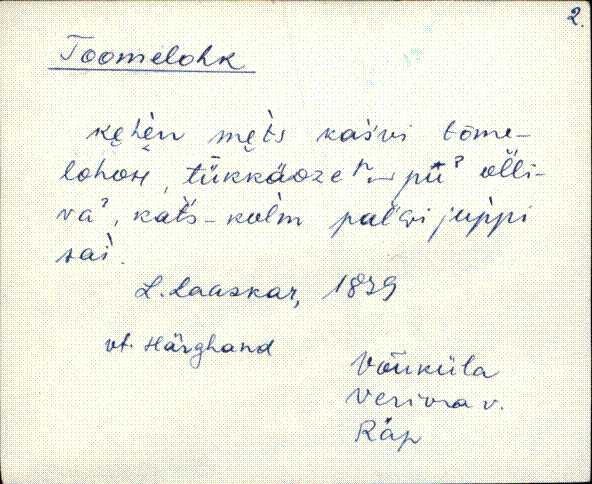 2.
Toomelohk
kęhèn mętš kaśvi tōme-
lohoн, tükkäoze pū ˀ olli-
va ˀ, katš-kolm palGi juppi
sai.
L. Laaskar, 1879
vt. Härghand
Võuküla
Veriora v.
Räp